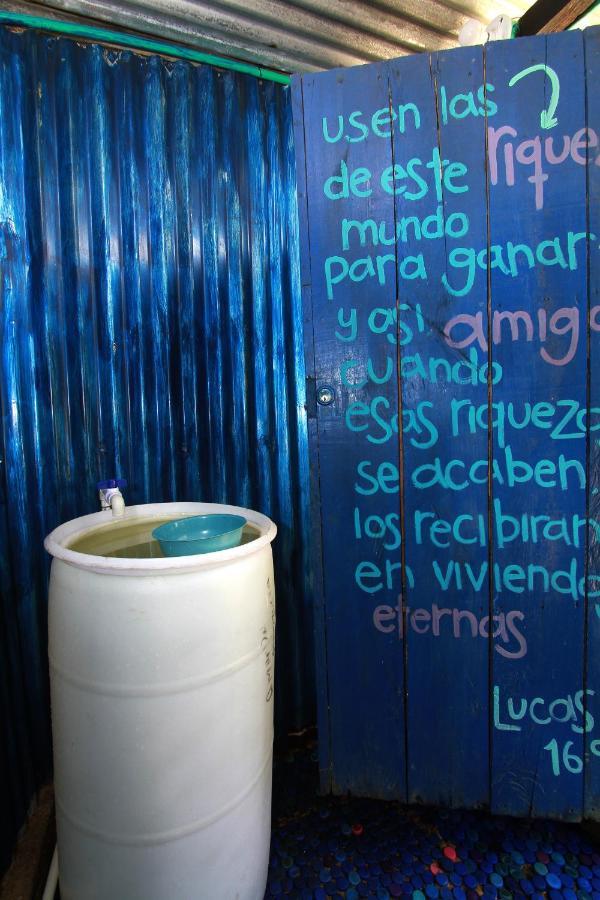 usen las
de este rique
mundo
para ganar
y asi amigo
cuando
esas riqueza
se acaben
los recibiran
en viviendo
eternas
Lucas
16:9